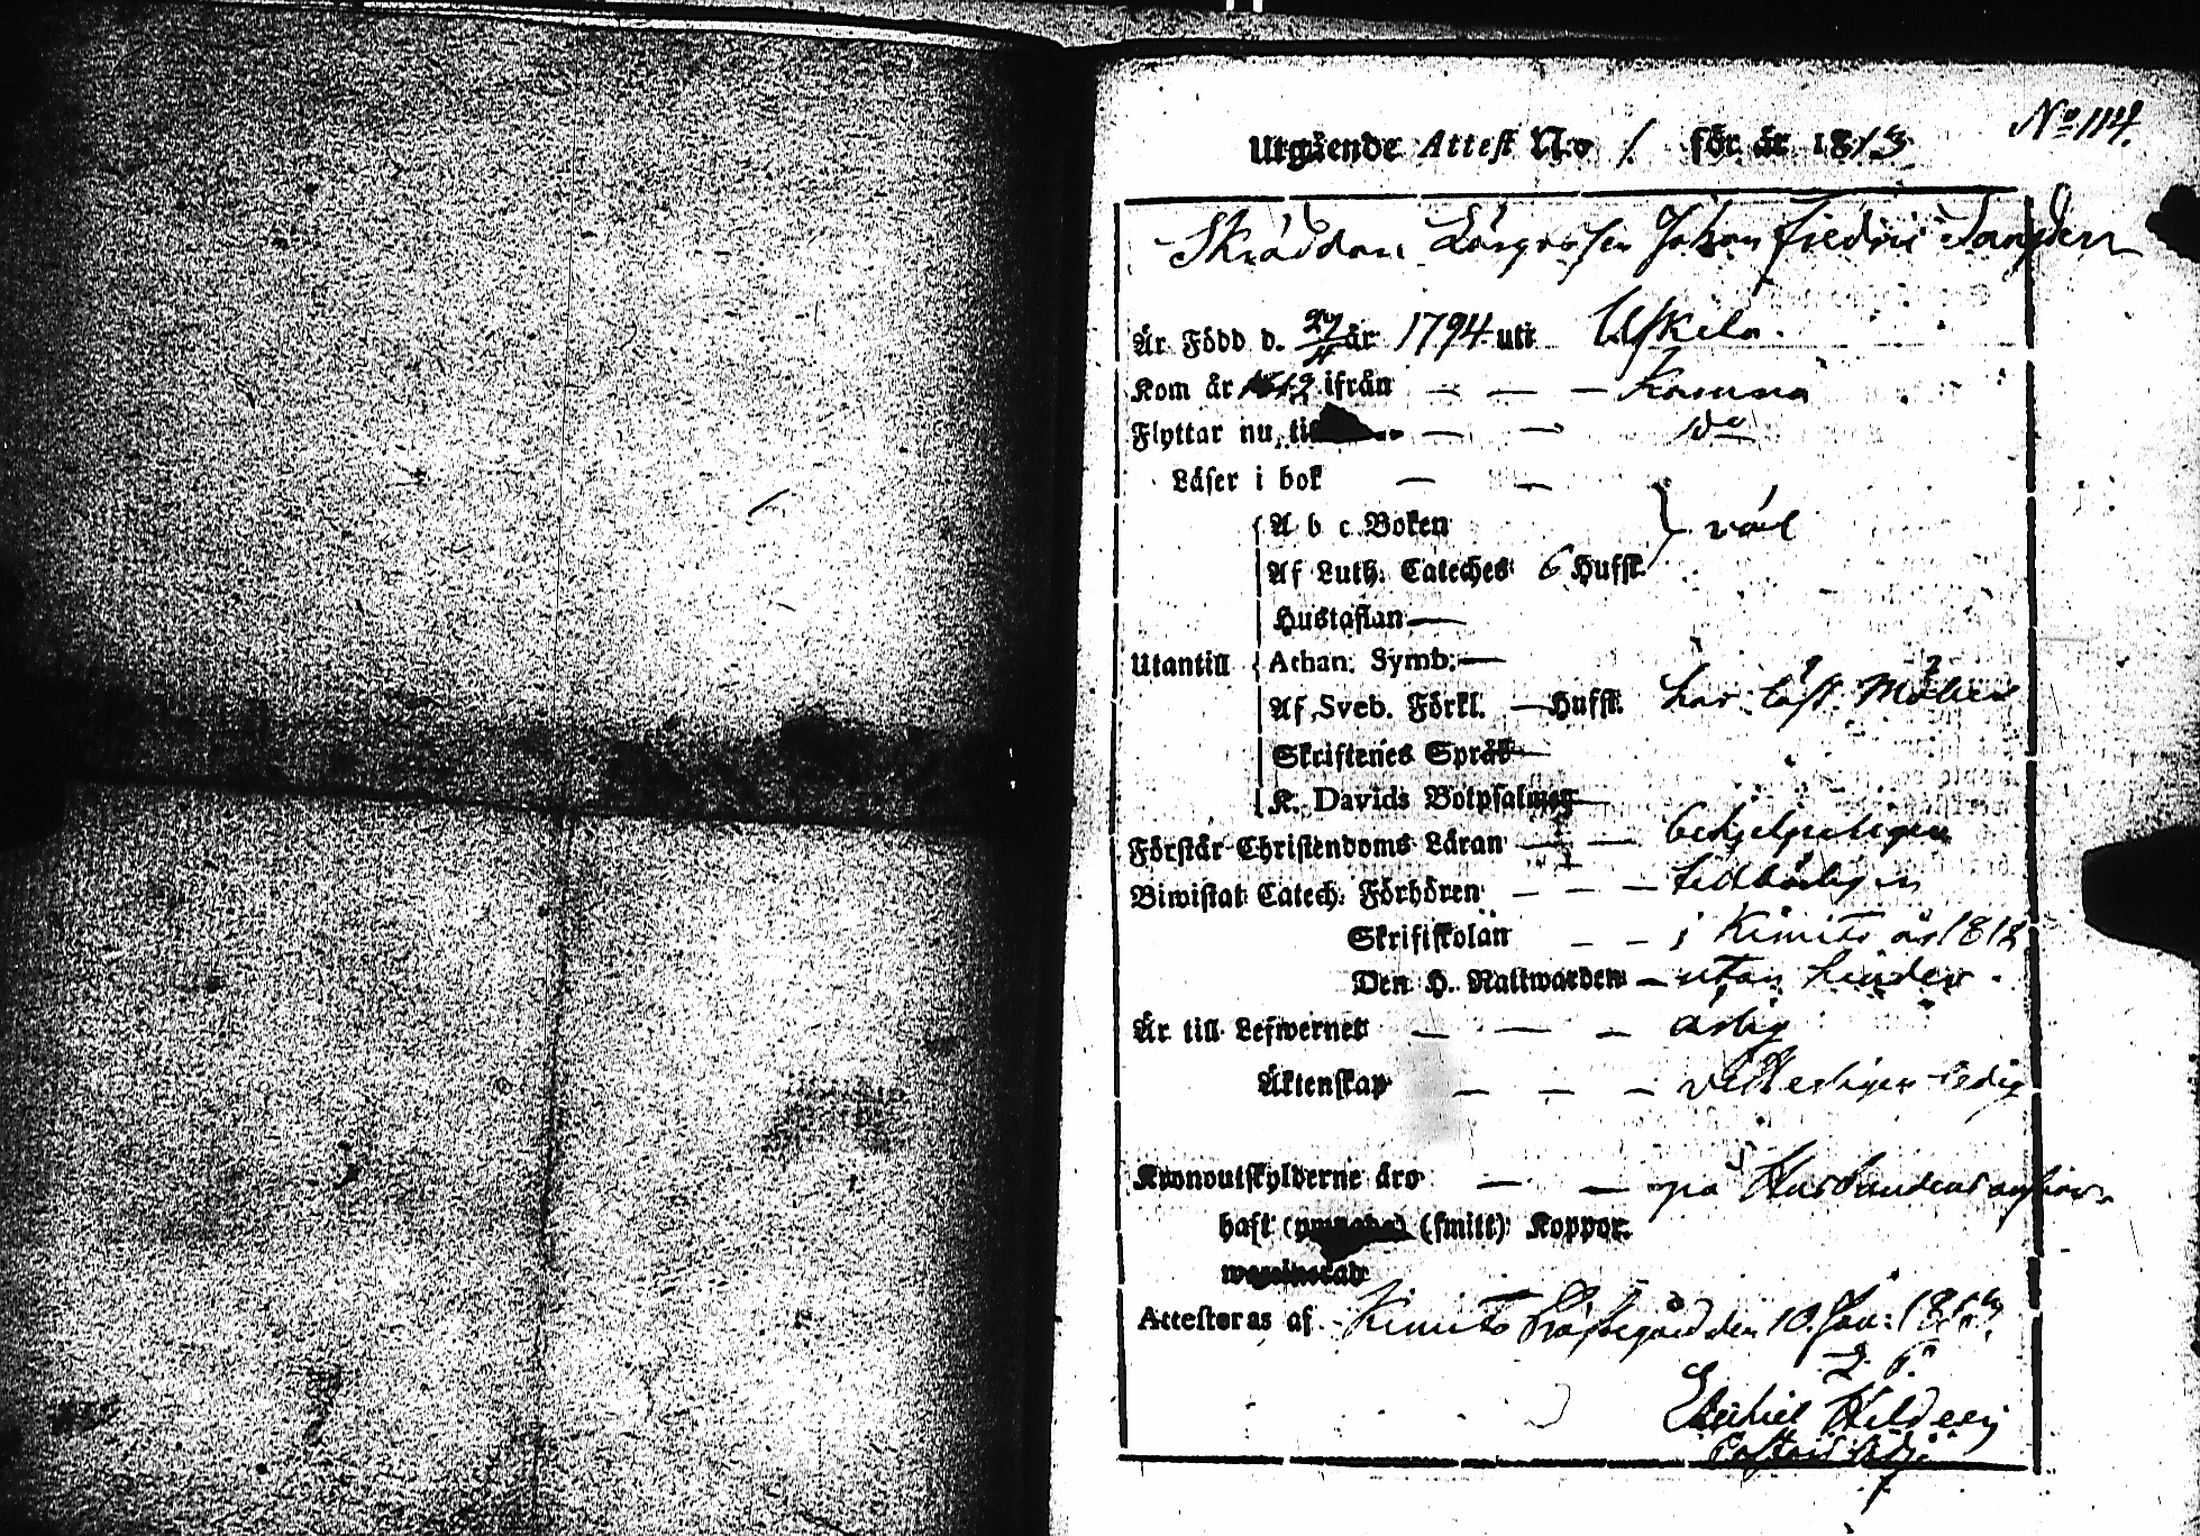 No 114.
Utgående Attest N:o 1. för år 1813
Skräddare Lärgossen Johan Fredric
Är Född d. 27/11 år 1794 uti Uskela.
Kom år 1812 ifrån — — — Kimito
Flyttar nu till — — do
Läser i bok — —
A b c Boken } väl
Af Luth. Cateches 6 Hufst.
Hustaflan —
Utantill Athan. Symb. —
Af Sveb. Förkl. — Hufst. har läst
Skriftenes Språk —
K. Davids Botpsalmer —
Förstår Christendoms Läran — — behjelpeligen
Biwistat Catech. Förhören — — — behörigen
Skriftskolan — — i Kimito år 1812
Den H. Nattwarden — utan hinder.
Är till Lefwernet — — — ärlig
Äktenskap — — — vetterligen ledig
Kronoutskylderne äro — — på Husbondens
haft (smitt) Koppor.
waccinerad
Attesteras af Kimito Prästegård den 10. Jan: 1813.